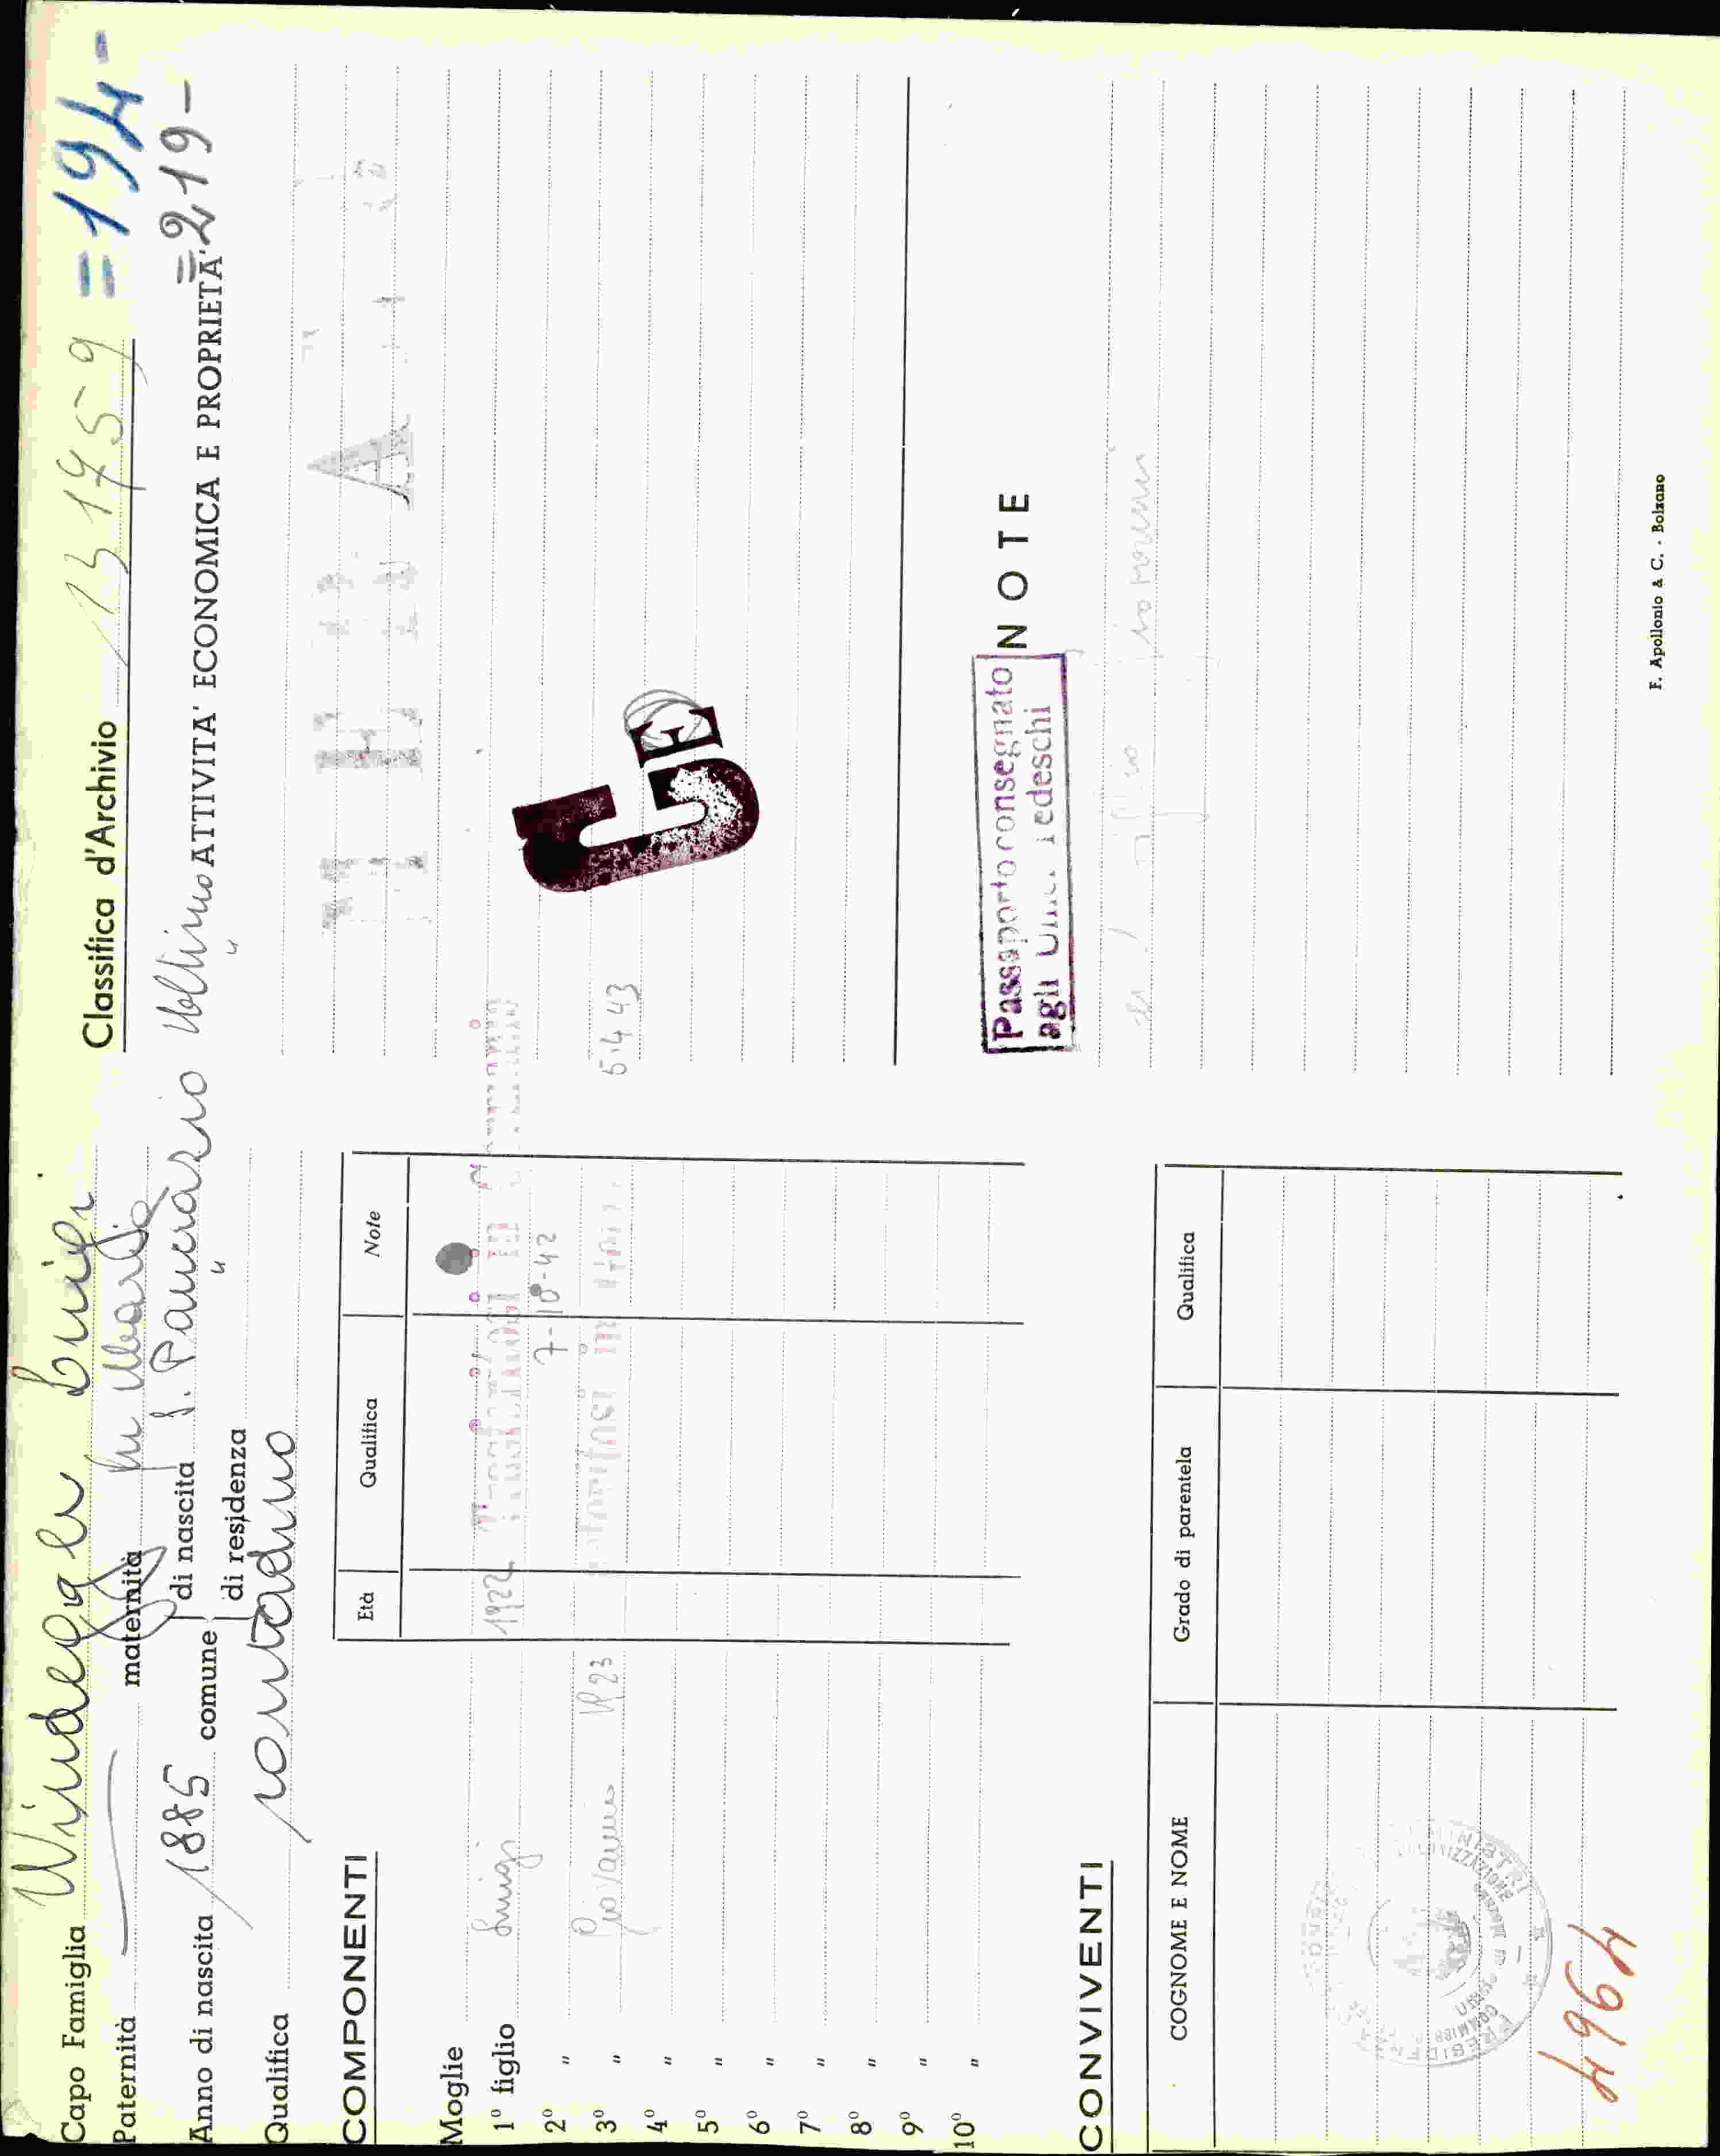 Capo Famiglia Windegger Luigi
Classifica d'Archivio 131759 =194-
Paternità maternità fu Maria
=219-
Anno di nascita 1885 comune di nascita S. Pancrazio Ultimo
di residenza " "
Qualifica contadino
ATTIVITA' ECONOMICA E PROPRIETA'
COMPONENTI
Età Qualifica Note
Moglie
1° figlio Luigi 1922
2° " 7-10-42
3° " Giovanni 1923 5.4.43
4° "
5° "
6° "
7° "
8° "
9° "
10° "
GE
NOTE
Passaporto consegnato
agli Uffici Tedeschi
CONVIVENTI
COGNOME E NOME Grado di parentela Qualifica
4964
F. Apollonio & C. - Bolzano